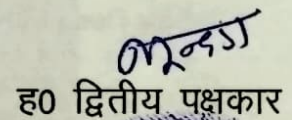 ह0 द्वितीय पक्षकार